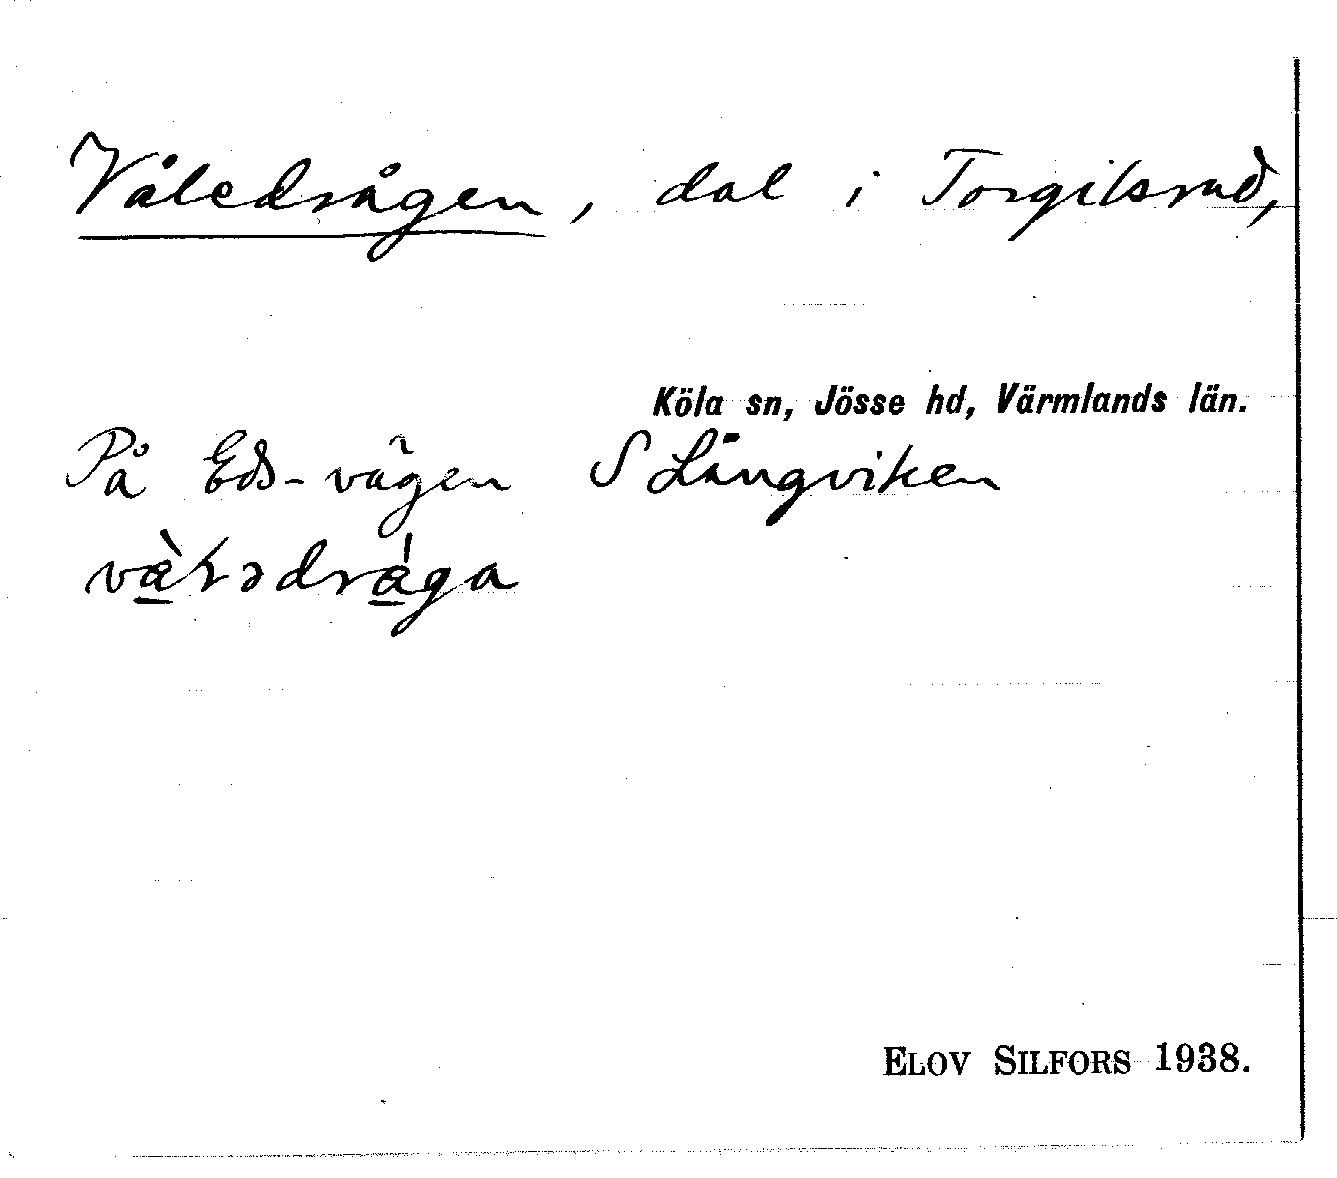 Våledrågen, dal i Torgilsrud,
Köla sn, Jösse hd, Värmlands län.
På Eds-vägen S Långviken
Elov Silfors 1938.